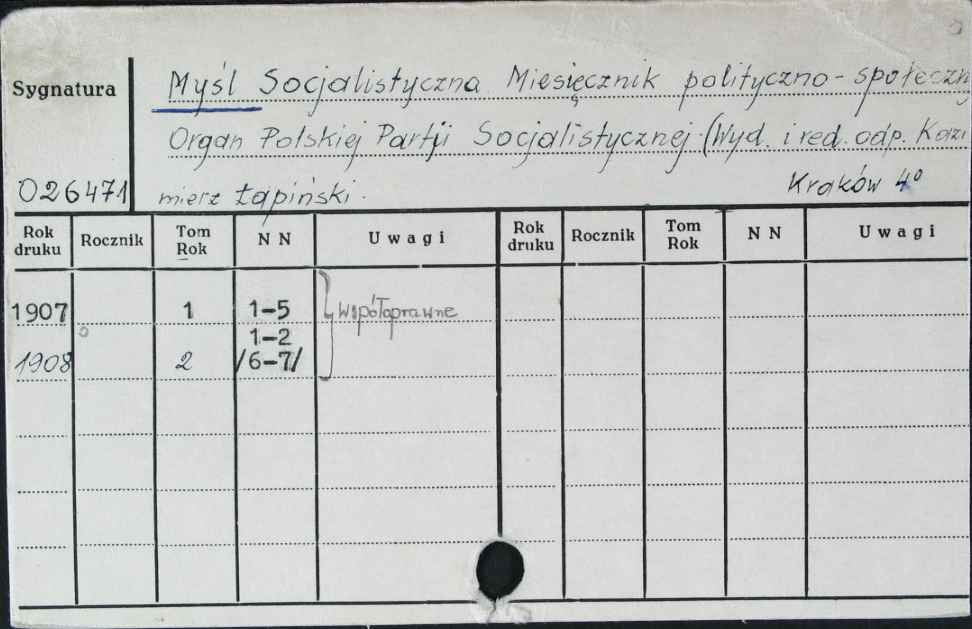 Sygnatura
Myśl Socjalistyczna Miesięcznik polityczno-społeczny
Organ Polskiej Partji Socjalistycznej (Wyd. i red. odp. Kazi
026471 mierz Łapiński. Kraków 4º
Rok druku Rocznik Tom Rok NN Uwagi Rok druku Rocznik Tom Rok NN Uwagi
1907 1 1-5 współoprawne
1-2
1908 2 /6-7/